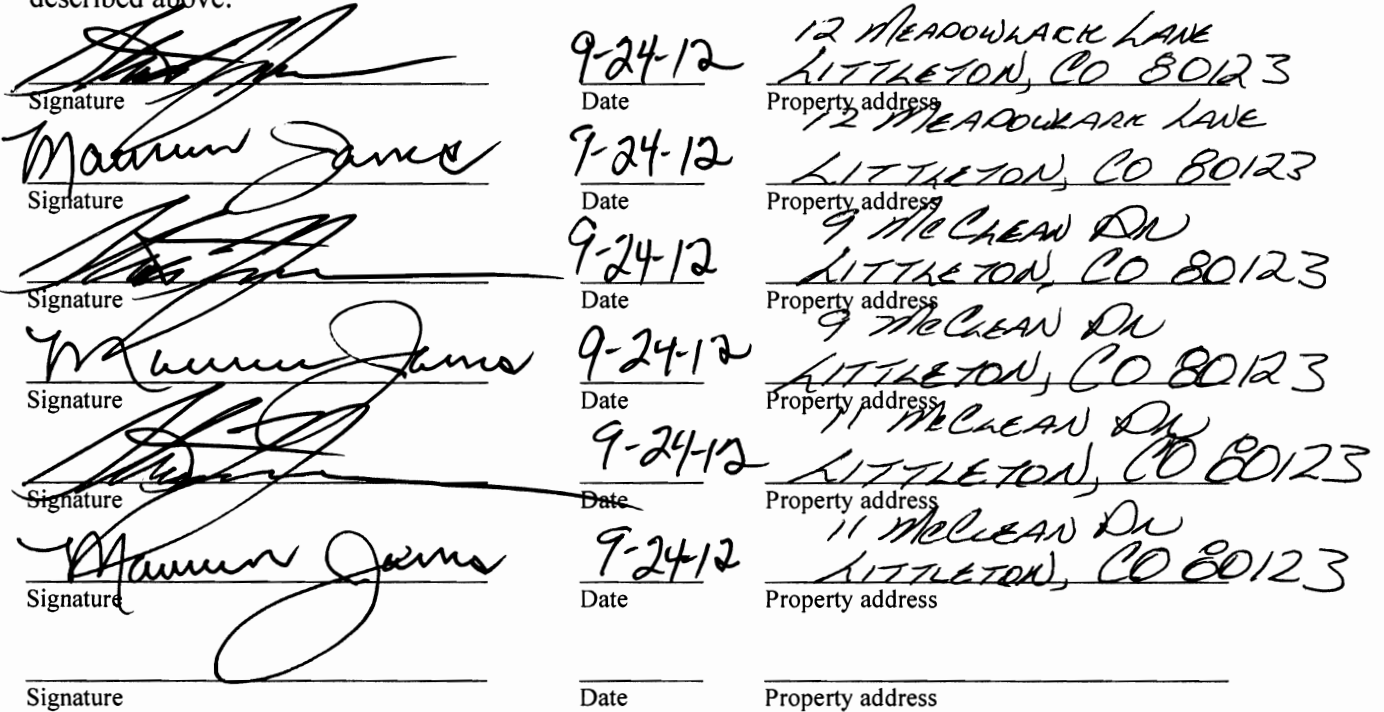 described above.
9-24-12 12 MEADOWLARK LANE
LITTLETON, CO 80123
Signature Date Property address
Maureen James 9-24-12 12 MEADOWLARK LANE
LITTLETON, CO 80123
Signature Date Property address
9-24-12 9 McCLEAN DR
LITTLETON, CO 80123
Signature Date Property address
Maureen James 9-24-12 9 McCLEAN DR
LITTLETON, CO 80123
Signature Date Property address
9-24-12 11 McCLEAN DR
LITTLETON, CO 80123
Signature Date Property address
Maureen James 9-24-12 11 McCLEAN DR
LITTLETON, CO 80123
Signature Date Property address
Signature Date Property address